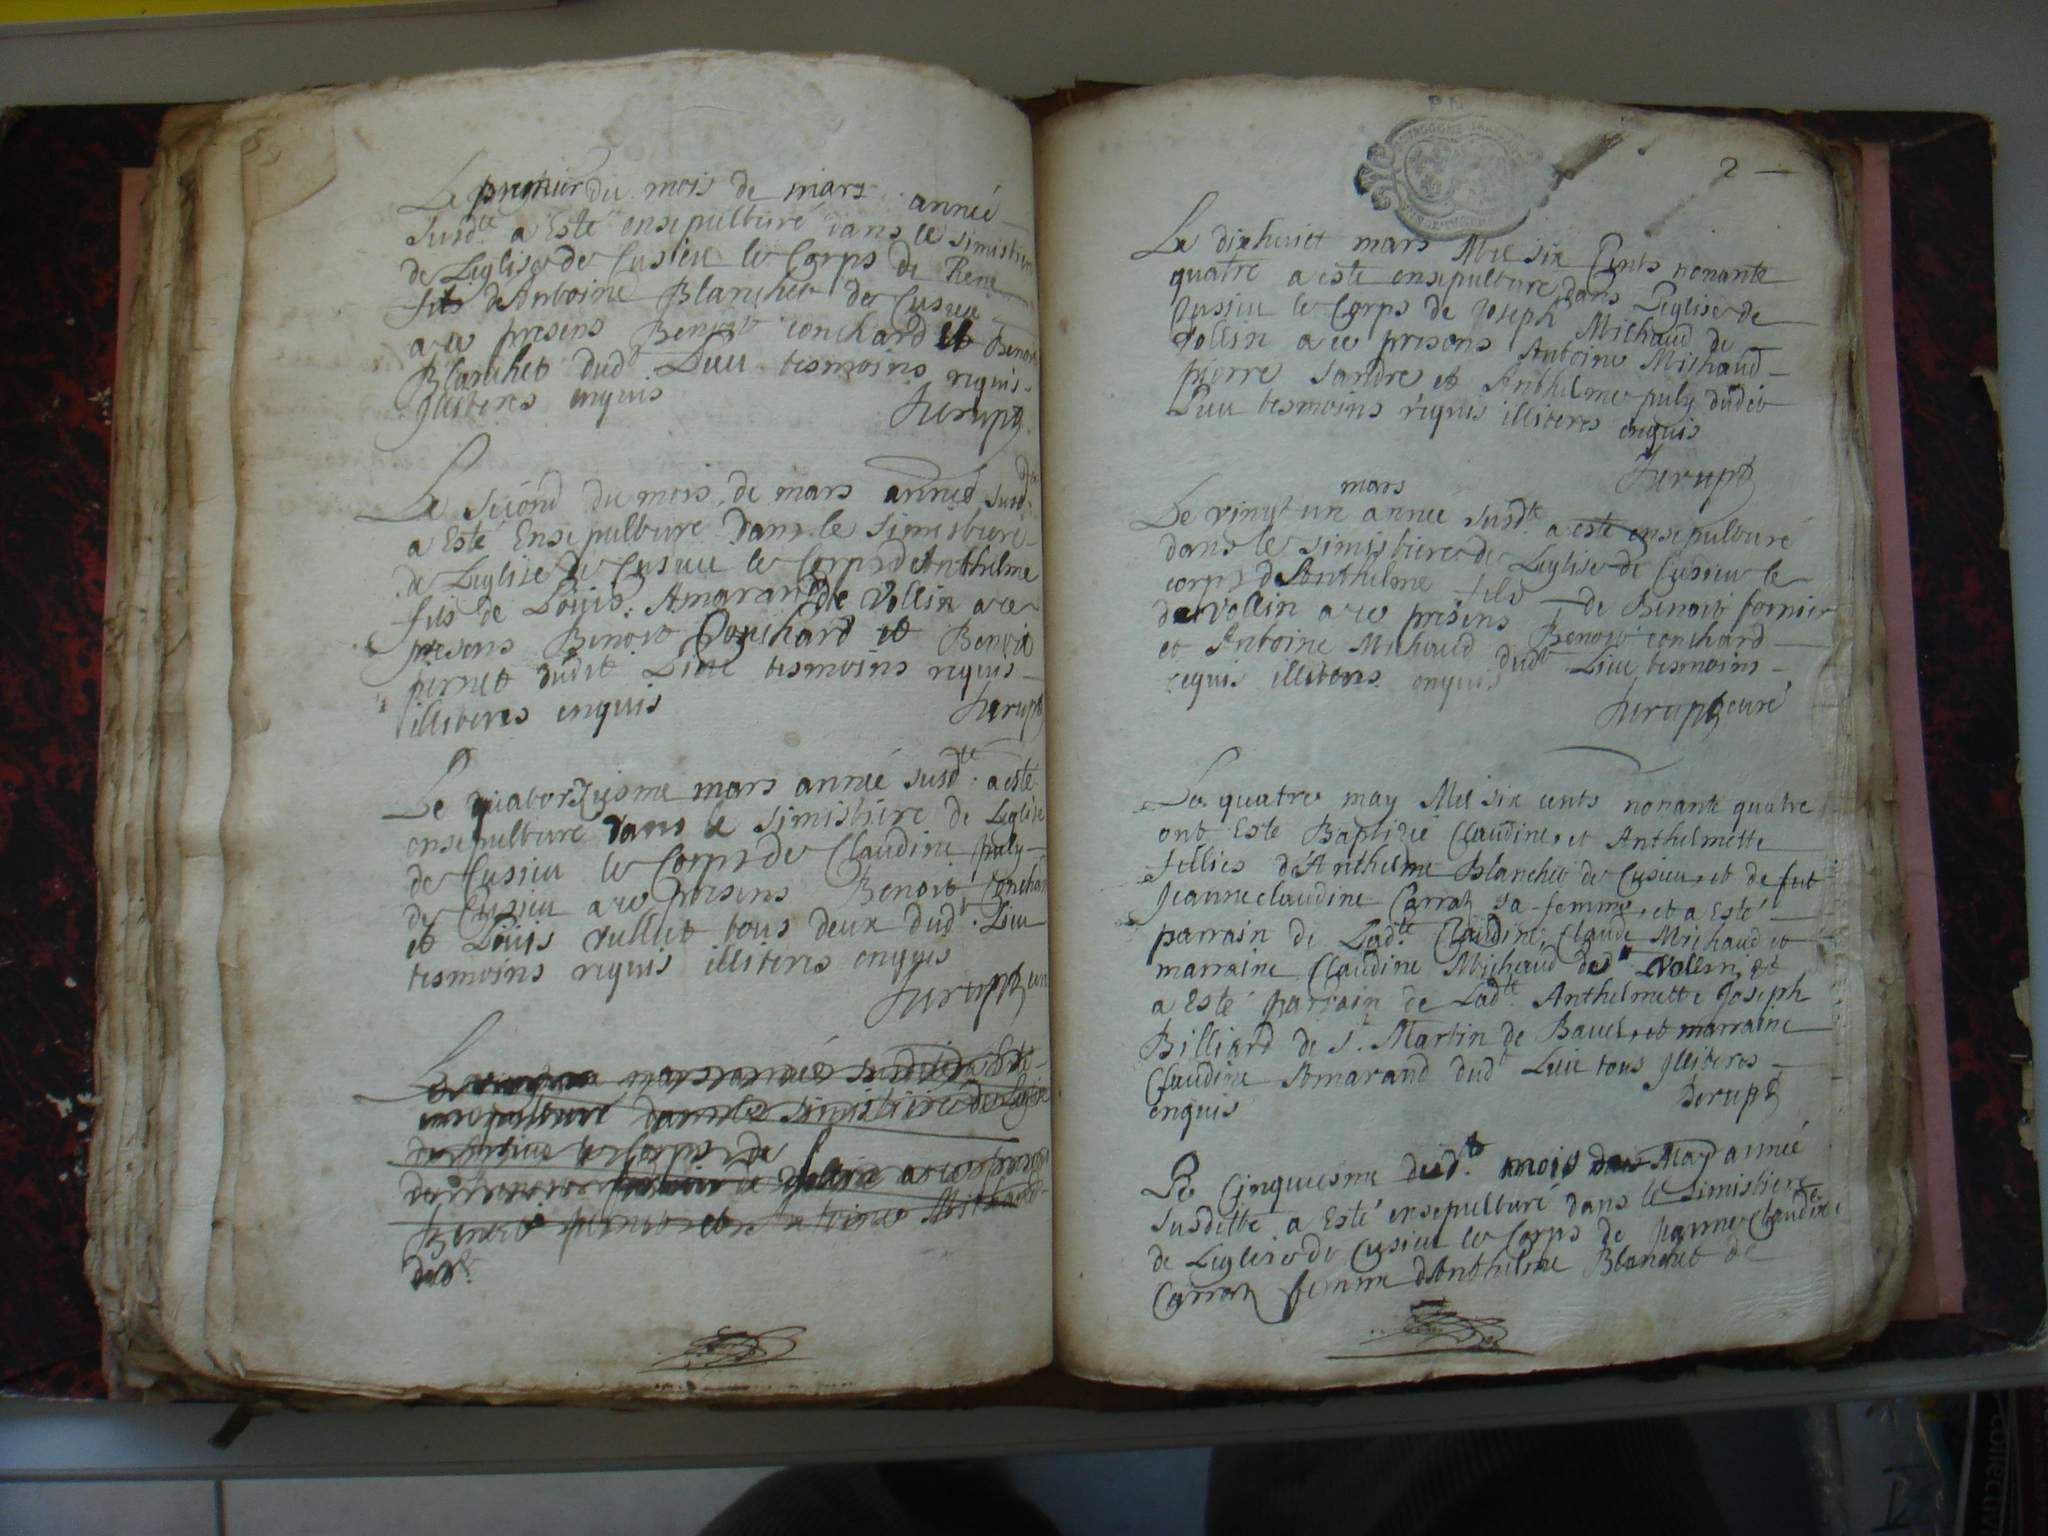 Le premier du mois de mars année
susdte a Esté ensepulturé dans le simistiere
de Leglise de Cusieu le Corps de Rene
fils dAntoine Blanchet de Cusieu
a ce presens Benoit conchard et Benoit
Blanchet dudt Lieu tesmoins requis
Illiteres enquis
Le second du mois de mars année susdte
a Esté Ensepulturé dans le simistiere
de Leglise de Cusieu le Corps dAnthelme
fils de Louis Amarand de Vollin a ce
presens Benoit Conchard et Benoit
pernet dudit Lieu tesmoins requis
illiteres enquis
Le quatorziesme mars année susdte a esté
ensepulturé dans le simistiere de Leglise
de Cusieu le Corps de Claudine puly
de Cusieu a ce presens Benoit Conchard
et Louis Vullet tous deux dudt Lieu
tesmoins requis illiteres enquis
mars année
simistiere de Leglise
le Corps de
a ce presens
Benoit pernet et Antoine Michaud
dudt
2
Le dixhuict mars Mil six Cents nonante
quatre a esté ensepulturé dans Leglise de
Cusieu le Corps de Joseph Michaud de
Vollin a ce presens Antoine Michaud
pierre Sandre et Anthelme puly dudit
Lieu tesmoins requis illiteres enquis
mars
Le vingt un année susdte a esté ensepulturé
dans le simistiere de Leglise de Cusieu le
corps dAnthelme fils de Benoit fornier
de Vollin a ce presens Benoit conchard
et Antoine Michaud dudt Lieu tesmoins
requis illiteres enquis
curé
Le quatre may Mil six cents nonante quatre
ont Esté Baptizé Claudine et Anthelmette
fellies dAnthelme Blanchet de Cusieu et de fut
Jeanne claudine Carraz sa femme et a Esté
parrain de Ladte Claudine Claude Michaud et
marraine Claudine Michaud de Vollin et
a Esté parrain de Ladte Anthelmette Joseph
Billiard de St Martin de Bavel et marraine
Claudine Amarand dudt Lieu tous Illiteres
enquis
Le Cinquiesme dudt mois de May année
susditte a Esté ensepulturé dans le simistiere
de Leglise de Cusieu le Corps de Jeanne Claudine
Carraz femme dAnthelme Blanchet de